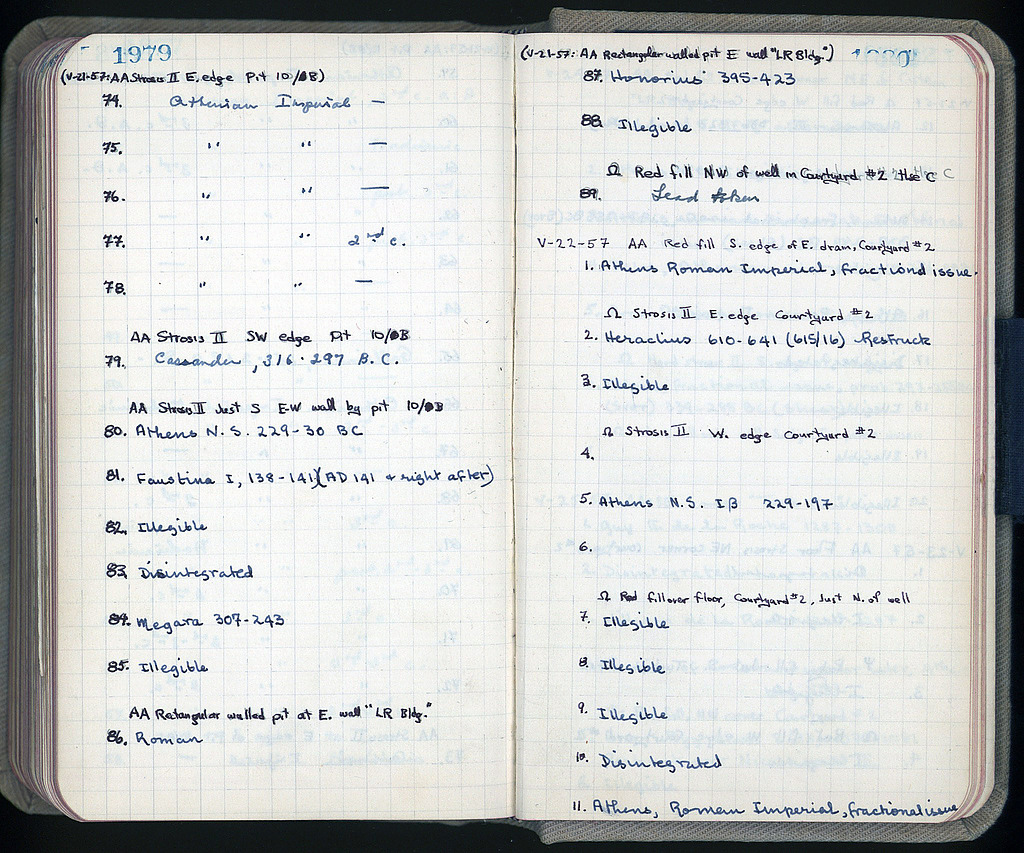 1979
(V-21-57: AA Strosis II E. edge Pit 10/ΘB)
74. Athenian Imperial —
75. " " —
76. " " —
77. " " 2nd c.
78. " " —
AA Strosis II SW edge Pit 10/ΘB
79. Cassander, 316-297 B.C.
AA Strosis II Just S E-W wall by pit 10/ΘB
80. Athens N.S. 229-30 BC
81. Faustina I, 138-141 (AD 141 + right after)
82. Illegible
83. Disintegrated
84. Megara 307-243
85. Illegible
AA Retangular walled pit at E. wall "LR Bldg."
86. Roman
1980
(V-21-57: AA Rectangular walled pit E wall "LR Bldg.")
87. Honorius 395-423
88. Illegible
Ω Red fill NW of well in Courtyard #2 Hse C
89. Lead token
V-22-57 AA Red fill S. edge of E. drain, Courtyard #2
1. Athens Roman Imperial, fractional issue.
Ω Strosis II E. edge Courtyard #2
2. Heraclius 610-641 (615/16) Restruck
3. Illegible
Ω Strosis II W. edge Courtyard #2
4.
5. Athens N.S. Iβ 229-197
6.
Ω Red fill over floor, Courtyard #2, Just N. of well
7. Illegible
8. Illegible
9. Illegible
10. Disintegrated
11. Athens, Roman Imperial, fractional issue